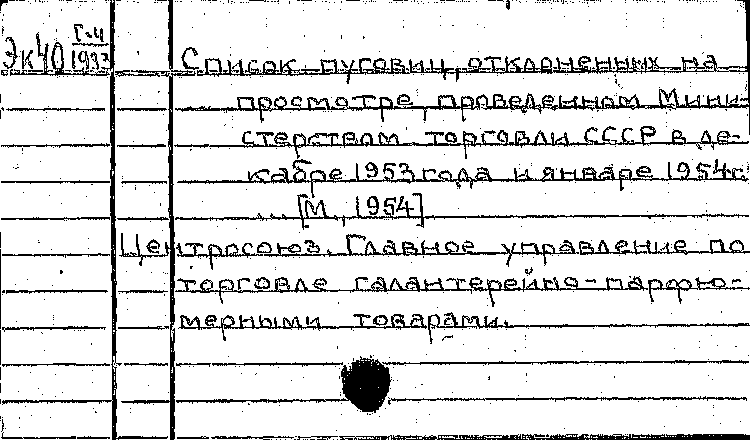 Эк40 Г-4/1933
Список пуговиц, отклоненных на
просмотре, проведенном Мини-
стерством торговли СССР в де-
кабре 1953 года и январе 1954 г.
... [М., 1954]
Центросоюз. Главное управление по
торговле галантерейно-парфю-
мерными товарами.